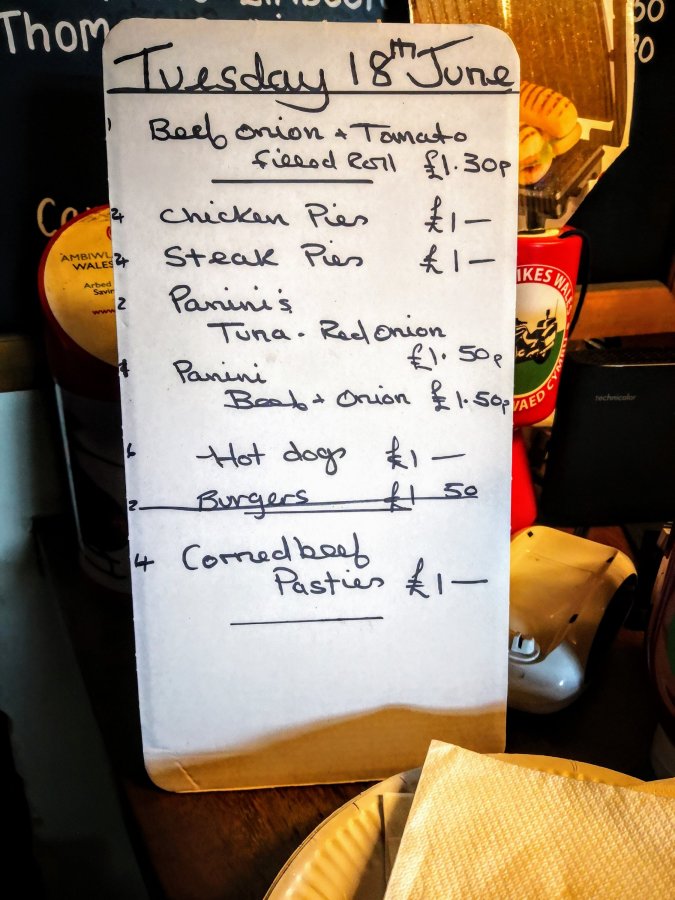 Thom
50
20
Tuesday 18th June
Beef onion + Tomato
filled Roll £1.30p
Chicken Pies £1 —
Steak Pies £1 —
2 Panini's
Tuna - Red onion
£1. 50p
Panini
Beef + Onion £1.50p
6 Hot dogs £1 —
2 Burgers £1 50
4 Corned beef
Pasties £1 —
AMBIWL
WALES
Arbed
Savin
www.
IKES WALES
WAED CYMRU
technicolor